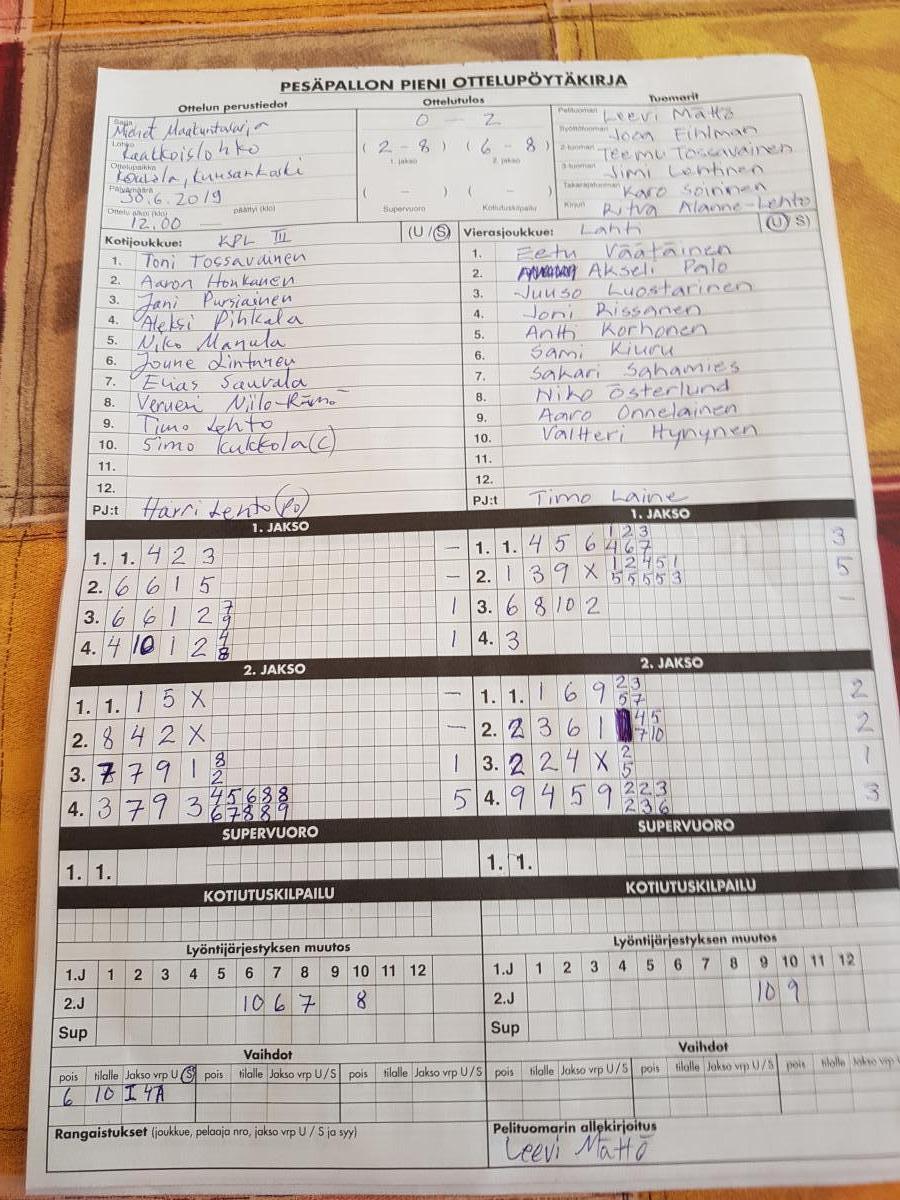 PESÄPALLON PIENI OTTELUPÖYTÄKIRJA
Ottelun perustiedot
Ottelutulos
Tuomarit
Sarja Miehet Maakuntasarja
Lohko Kaakkoislohko
Ottelupaikka Kouvola, Kuusankoski
Päivämäärä 30.6.2019
Ottelu alkoi (klo) 12.00 päättyi (klo)
0 - 2
( 2 - 8 ) ( 6 - 8 )
1. jakso 2. jakso
( - ) ( - )
Supervuoro Kotiutuskilpailu
Pelituomari Leevi Mättö
Syöttötuomari Joan Fihlman
2-tuomari Teemu Tossavainen
3-tuomari Jimi Lehtinen
Takarajatuomari Karo Soininen
Kirjuri Ritva Alanne-Lehto
Kotijoukkue: KPL III (U/S)
1. Toni Tossavainen
2. Aaron Honkanen
3. Jani Pursiainen
4. Aleksi Pihkala
5. Niko Manula
6. Joune Lintunen
7. Elias Sauvala
8. Verneri Niilo-Rämö
9. Timo Lehto
10. Simo Kukkola (C)
11.
12.
PJ:t Harri Lehto (PO)
Vierasjoukkue: Lahti (U/S)
1. Eetu Väätäinen
2. Akseli Palo
3. Juuso Luostarinen
4. Joni Rissanen
5. Antti Korhonen
6. Sami Kiuru
7. Sakari Sahamies
8. Niko Österlund
9. Aaro Onnelainen
10. Valtteri Hynynen
11.
12.
PJ:t Timo Laine
1. JAKSO
1. 1. 4 2 3 -
2. 6 6 1 5 -
3. 6 6 1 2 7 1
9
4. 4 10 1 2 4 1
8
1. JAKSO
1 2 3
1. 1. 4 5 6 4 6 7 3
2. 1 3 9 X 1 2 4 5 1 5
5 5 5 5 3
3. 6 8 10 2 -
4. 3
2. JAKSO
1. 1. 1 5 X -
2. 8 4 2 X -
3. 7 7 9 1 8 1
2
4. 3 7 9 3 4 5 6 8 8 5
6 7 8 8 9
2. JAKSO
1. 1. 1 6 9 2 3 2
5 7
2. 2 3 6 1 4 5 2
7 10
3. 2 2 4 X 2 1
5
4. 9 4 5 9 2 2 3 3
2 3 6
SUPERVUORO
1. 1.
SUPERVUORO
1. 1.
KOTIUTUSKILPAILU
KOTIUTUSKILPAILU
Lyöntijärjestyksen muutos
1.J 1 2 3 4 5 6 7 8 9 10 11 12
2.J 10 6 7 8
Sup
Lyöntijärjestyksen muutos
1.J 1 2 3 4 5 6 7 8 9 10 11 12
2.J 10 9
Sup
Vaihdot
pois tilalle Jakso vrp U/S pois tilalle Jakso vrp U/S pois tilalle Jakso vrp U/S
6 10 I 4A
Vaihdot
pois tilalle Jakso vrp U/S pois tilalle Jakso vrp U/S pois tilalle Jakso vrp U/S
Rangaistukset (joukkue, pelaaja nro, jakso vrp U / S ja syy)
Pelituomarin allekirjoitus
Leevi Mättö